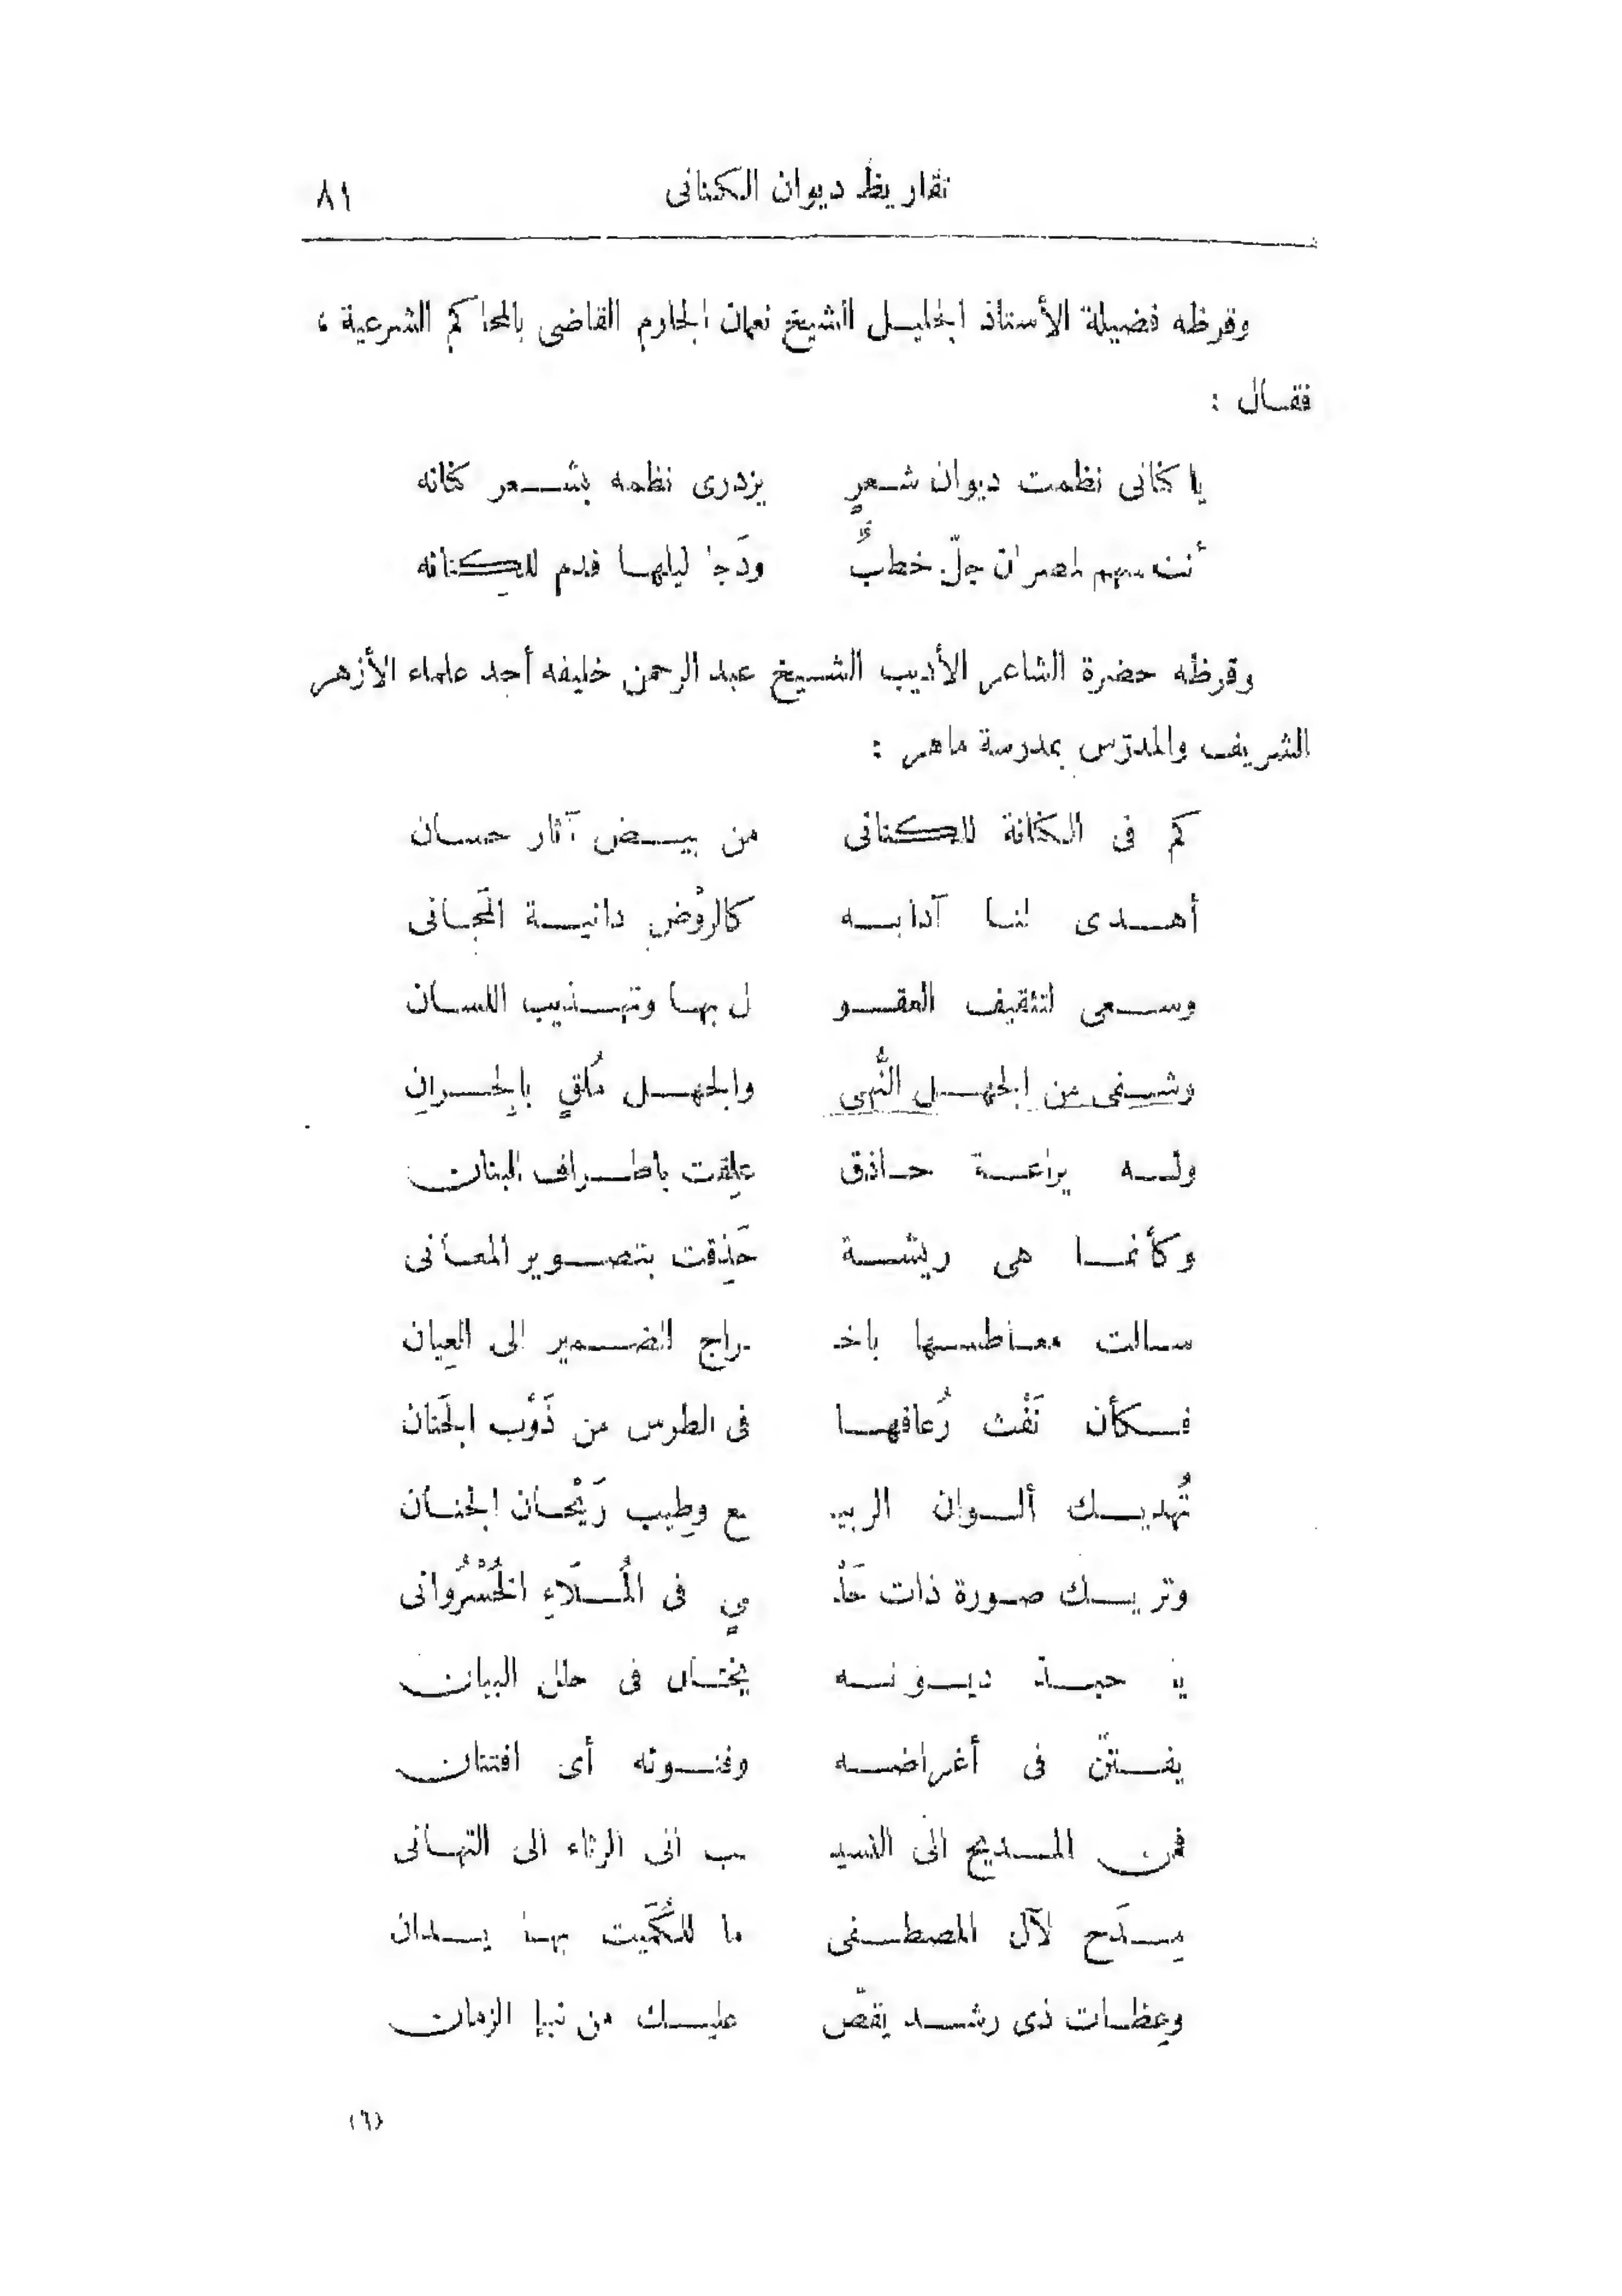 تقاريظ ديوان الكنانى ٨١
وقرظه فضيلة الأستاذ الجليل الشيخ نعمان الجارم القاضى بالمحاكم الشرعية ،
فقال :
يا كنانى نظمت ديوان شعرٍ يزدرى نظمه بشعر كنانه
أنت سهم لمصر ان جلّ خطبٌ ودَجا ليلها فدم للكنانه
وقرظه حضرة الشاعر الأديب الشيخ عبد الرحمن خليفه أحد علماء الأزهر
الشريف والمدرّس بمدرسة ماهر :
كم فى الكنانة للكنانى من بيض آثار حسان
أهدى لنا آدابه كالروْض دانية المَجانى
وسعى لتثقيف العقو ل بها وتهذيب اللسان
وشفى من الجهل النُّهى والجهل مُلقٍ بالجِرانِ
وله يراعة حاذق علِقت باطراف البنان
وكأنما هى ريشة حَذِقت بتصوير المعانى
سالت معاطسها باخـ ـراج الضمير الى العِيان
فكأن نَفْث رُعافها فى الطرس من ذَوْب الجَنان
تُهديك ألوان الربيـ ـع وطِيب رَيْحان الجنان
وتريك صورة ذات حَلْـ ـيٍ فى المُلَاءِ الخُسْرُوانى
يا حبذا ديوانه يختال فى حلل البيان
يفتنّ فى أغراضه وفنونه أى افتنان
فمن المديح الى النسيـ ـب الى الرثاء الى التهانى
مِدَح لآل المصطفى ما للكُمَيت بها يدان
وعِظات ذى رشد يقصّ عليك من نبإ الزمان
(٦)